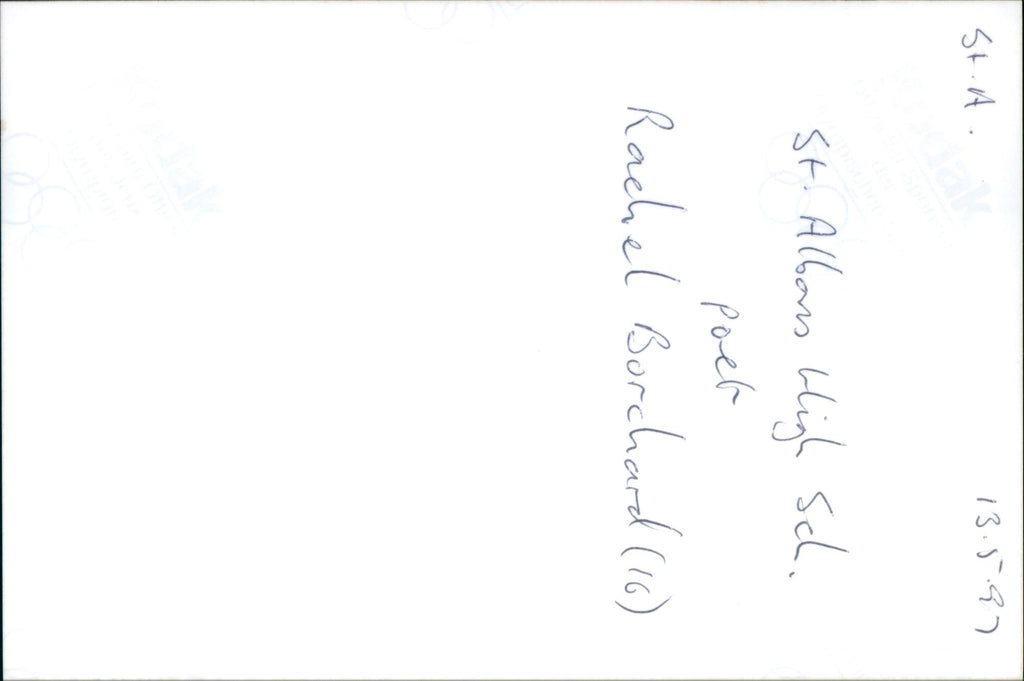 St. A. 13.5.97
St. Albans High Sch.
poet
Rachel Borchard (16)